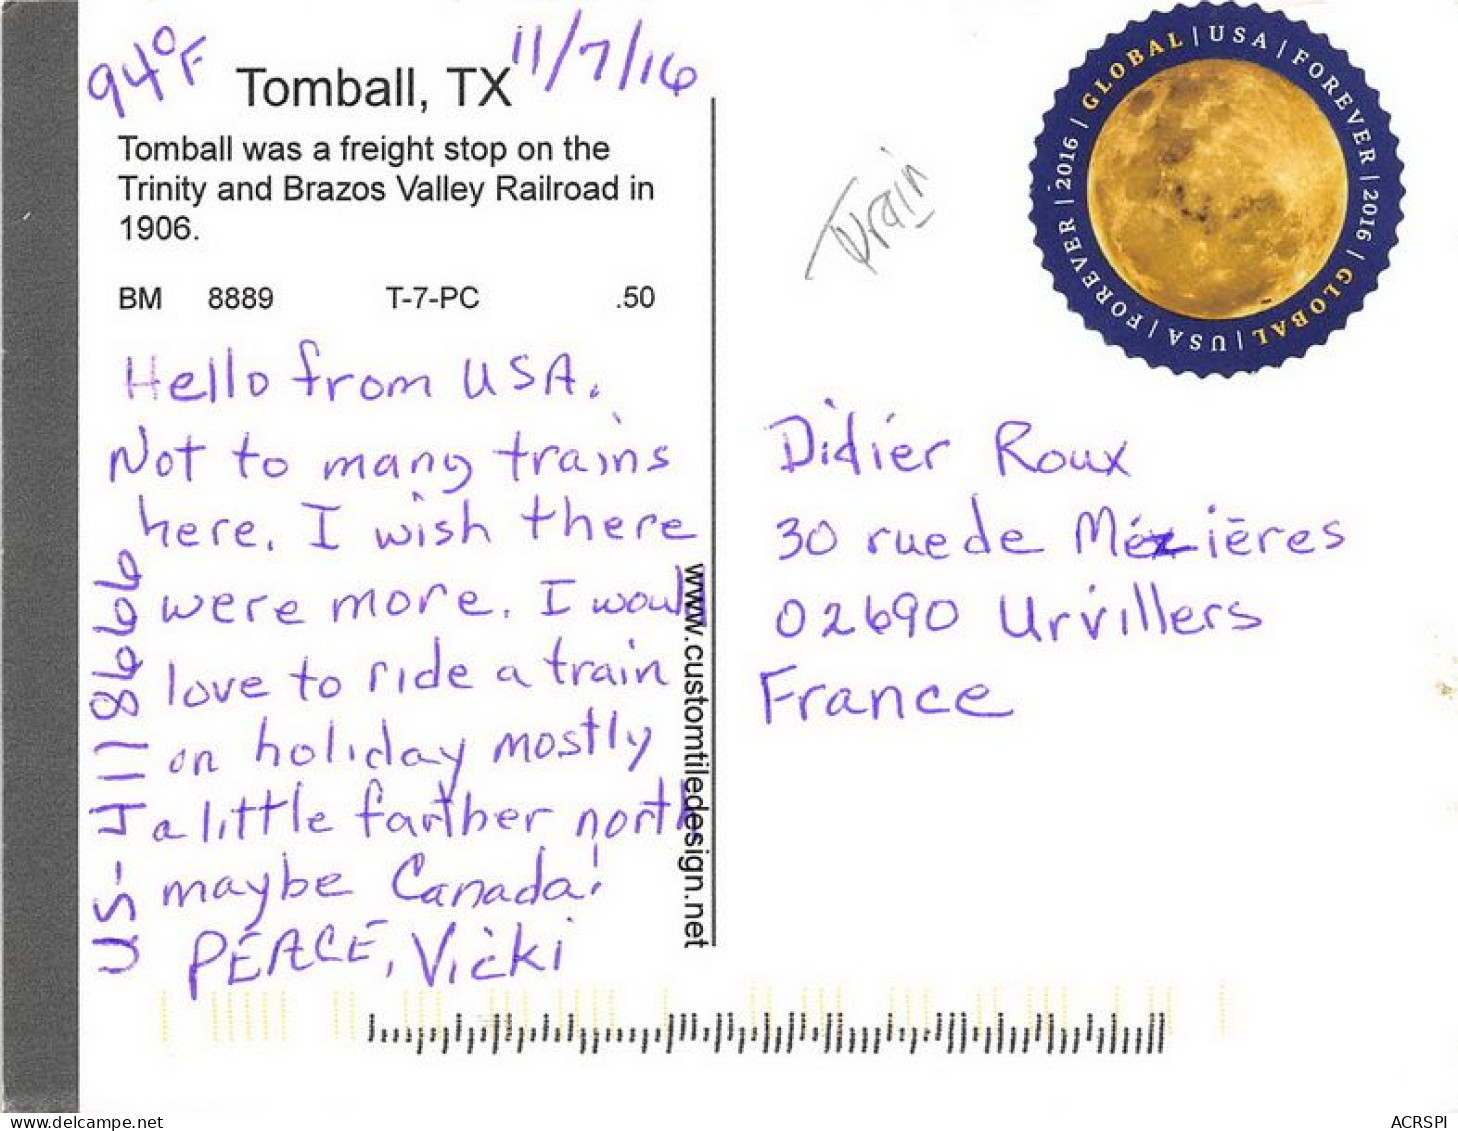 94°F
Tomball, TX
11/7/16
Tomball was a freight stop on the
Trinity and Brazos Valley Railroad in
1906.
BM 8889 T-7-PC .50
Hello from USA.
Not to many trains
here. I wish there
were more. I would
love to ride a train
on holiday mostly
a little farther north
maybe Canada!
PEACE, Vicki
US-4118666
www.customtiledesign.net
Train
GLOBAL | USA | FOREVER | 2016 | GLOBAL | USA | FOREVER | 2016 |
Didier Roux
30 rue de Mézières
02690 Urvillers
France
www.delcampe.net
ACRSPI